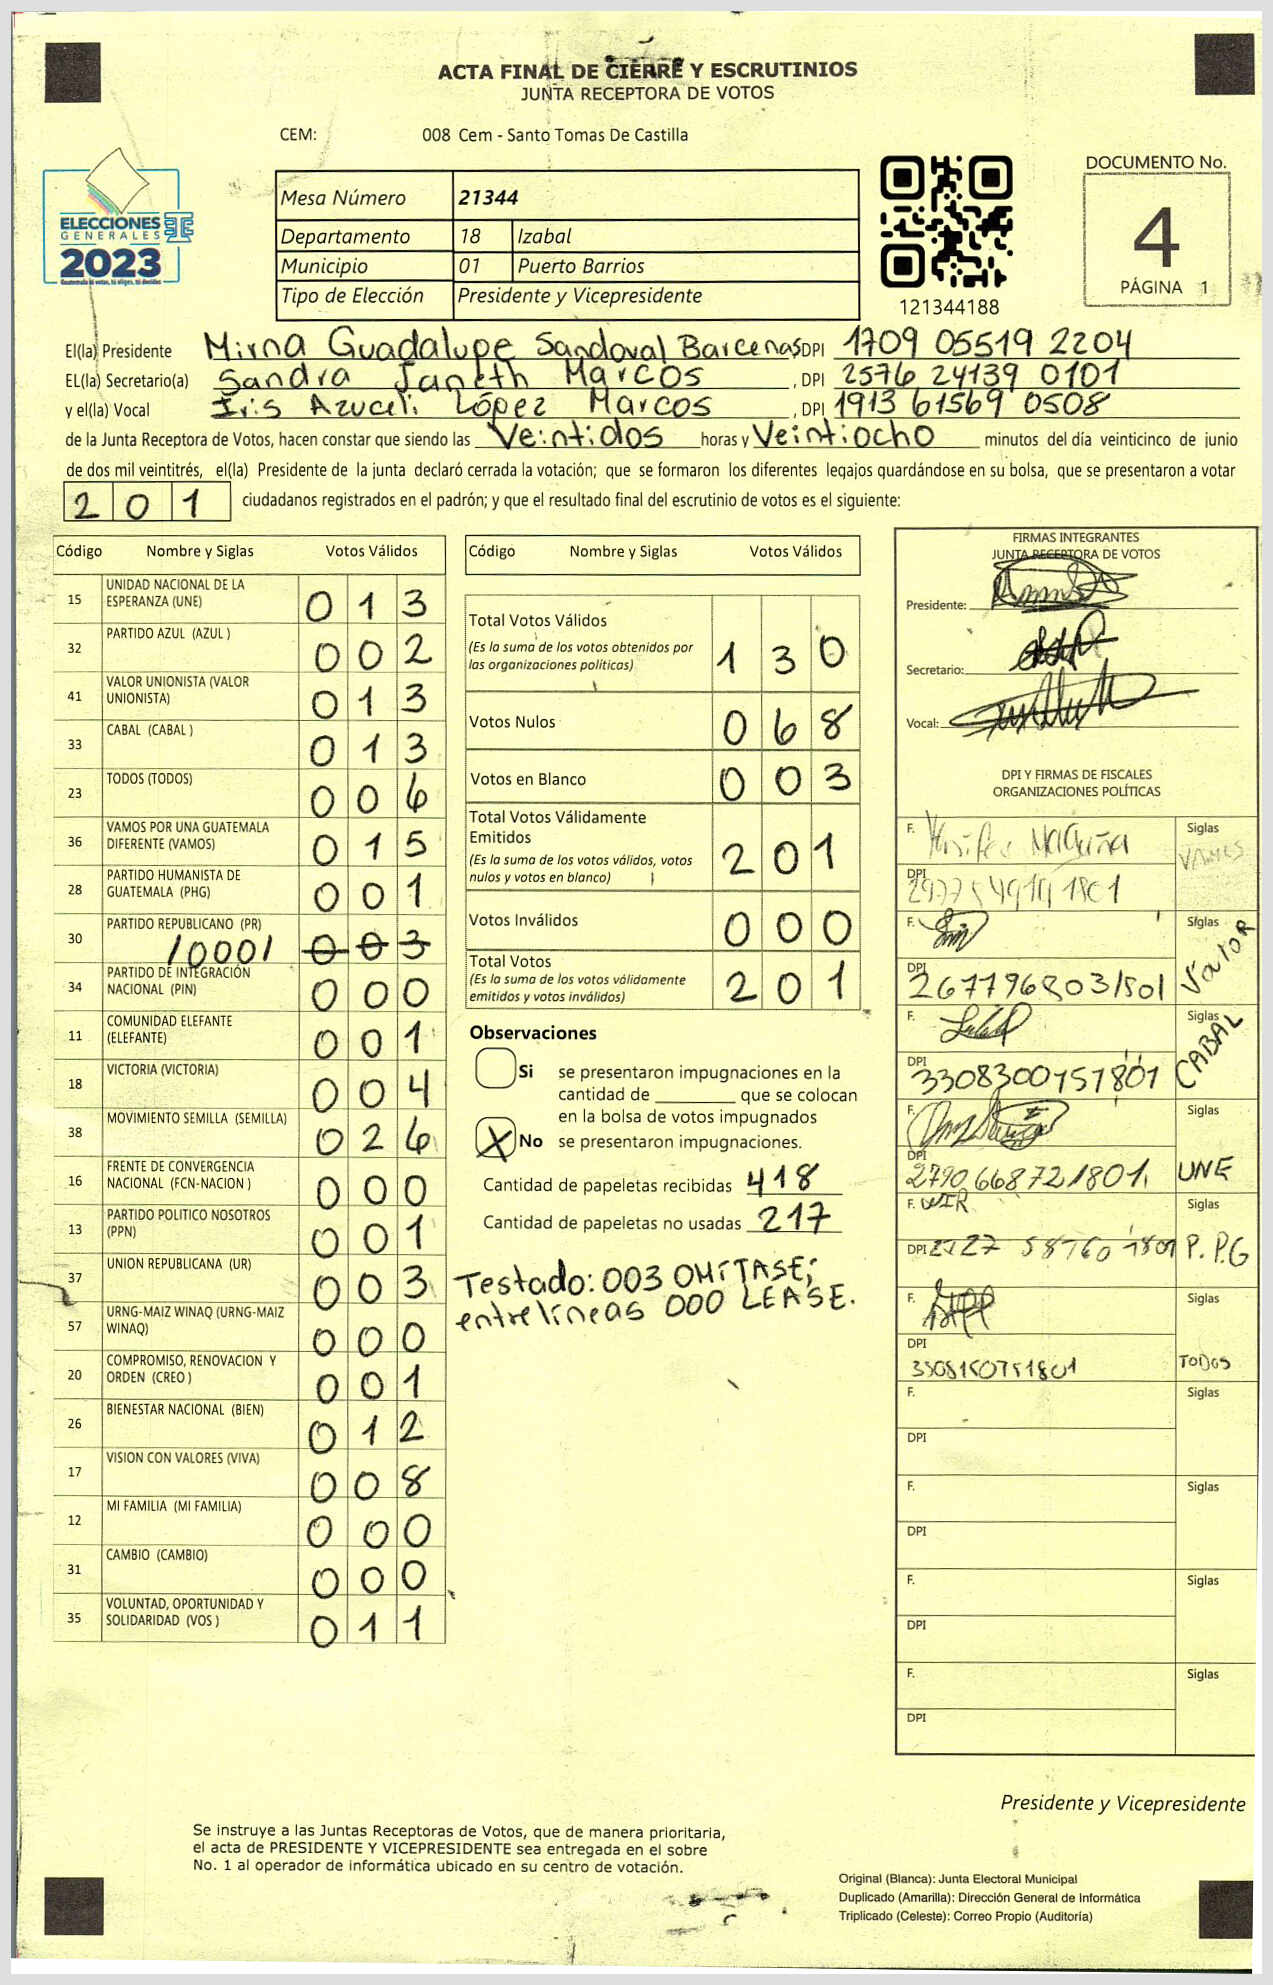 ACTA FINAL DE CIERRE Y ESCRUTINIOS
JUNTA RECEPTORA DE VOTOS
CEM: 008 Cem - Santo Tomas De Castilla
ELECCIONES
GENERALES
2023
Mesa Número 21344
Departamento 18 Izabal
Municipio 01 Puerto Barrios
Tipo de Elección Presidente y Vicepresidente
121344188
DOCUMENTO No.
4
PÁGINA 1
El(la) Presidente Mirna Guadalupe Sandoval Barcenas DPI 1709 05519 2204
EL(la) Secretario(a) Sandra Janeth Marcos , DPI 2576 24139 0101
y el(la) Vocal Iris Azuceli López Marcos , DPI 1913 61569 0508
de la Junta Receptora de Votos, hacen constar que siendo las Veintidos horas y Veintiocho minutos del día veinticinco de junio
de dos mil veintitrés, el(la) Presidente de la junta declaró cerrada la votación; que se formaron los diferentes legajos quardándose en su bolsa, que se presentaron a votar
2 0 1 ciudadanos registrados en el padrón; y que el resultado final del escrutinio de votos es el siguiente:
Código Nombre y Siglas Votos Válidos
15 UNIDAD NACIONAL DE LA ESPERANZA (UNE) 0 1 3
32 PARTIDO AZUL (AZUL ) 0 0 2
41 VALOR UNIONISTA (VALOR UNIONISTA) 0 1 3
33 CABAL (CABAL ) 0 1 3
23 TODOS (TODOS) 0 0 6
36 VAMOS POR UNA GUATEMALA DIFERENTE (VAMOS) 0 1 5
28 PARTIDO HUMANISTA DE GUATEMALA (PHG) 0 0 1
30 PARTIDO REPUBLICANO (PR) /000/ 0 0 3
34 PARTIDO DE INTEGRACIÓN NACIONAL (PIN) 0 0 0
11 COMUNIDAD ELEFANTE (ELEFANTE) 0 0 1
18 VICTORIA (VICTORIA) 0 0 4
38 MOVIMIENTO SEMILLA (SEMILLA) 0 2 6
16 FRENTE DE CONVERGENCIA NACIONAL (FCN-NACION ) 0 0 0
13 PARTIDO POLITICO NOSOTROS (PPN) 0 0 1
37 UNION REPUBLICANA (UR) 0 0 3
57 URNG-MAIZ WINAQ (URNG-MAIZ WINAQ) 0 0 0
20 COMPROMISO, RENOVACION Y ORDEN (CREO ) 0 0 1
26 BIENESTAR NACIONAL (BIEN) 0 1 2
17 VISION CON VALORES (VIVA) 0 0 8
12 MI FAMILIA (MI FAMILIA) 0 0 0
31 CAMBIO (CAMBIO) 0 0 0
35 VOLUNTAD, OPORTUNIDAD Y SOLIDARIDAD (VOS ) 0 1 1
Código Nombre y Siglas Votos Válidos
Total Votos Válidos 1 3 0
(Es la suma de los votos obtenidos por
las organizaciones políticas)
Votos Nulos 0 6 8
Votos en Blanco 0 0 3
Total Votos Válidamente
Emitidos 2 0 1
(Es la suma de los votos válidos, votos
nulos y votos en blanco)
Votos Inválidos 0 0 0
Total Votos 2 0 1
(Es la suma de los votos válidamente
emitidos y votos inválidos)
Observaciones
Si se presentaron impugnaciones en la
cantidad de ________ que se colocan
en la bolsa de votos impugnados
X No se presentaron impugnaciones.
Cantidad de papeletas recibidas 418
Cantidad de papeletas no usadas 217
Testado: 003 OMÍTASE;
entrelíneas 000 LEASE.
FIRMAS INTEGRANTES
JUNTA RECEPTORA DE VOTOS
Presidente:
Secretario:
Vocal:
DPI Y FIRMAS DE FISCALES
ORGANIZACIONES POLÍTICAS
F. Siglas VAMOS
DPI
F. Siglas Valor
DPI 2677968031801
F. Siglas CABAL
DPI 3308300751801
F. Siglas
DPI 2790668721801. UNE
F. Siglas
DPI P.P.G
F. Siglas
DPI TODOS
F. Siglas
DPI
F. Siglas
DPI
F. Siglas
DPI
F. Siglas
DPI
Presidente y Vicepresidente
Se instruye a las Juntas Receptoras de Votos, que de manera prioritaria,
el acta de PRESIDENTE Y VICEPRESIDENTE sea entregada en el sobre
No. 1 al operador de informática ubicado en su centro de votación.
Original (Blanca): Junta Electoral Municipal
Duplicado (Amarilla): Dirección General de Informática
Triplicado (Celeste): Correo Propio (Auditoría)